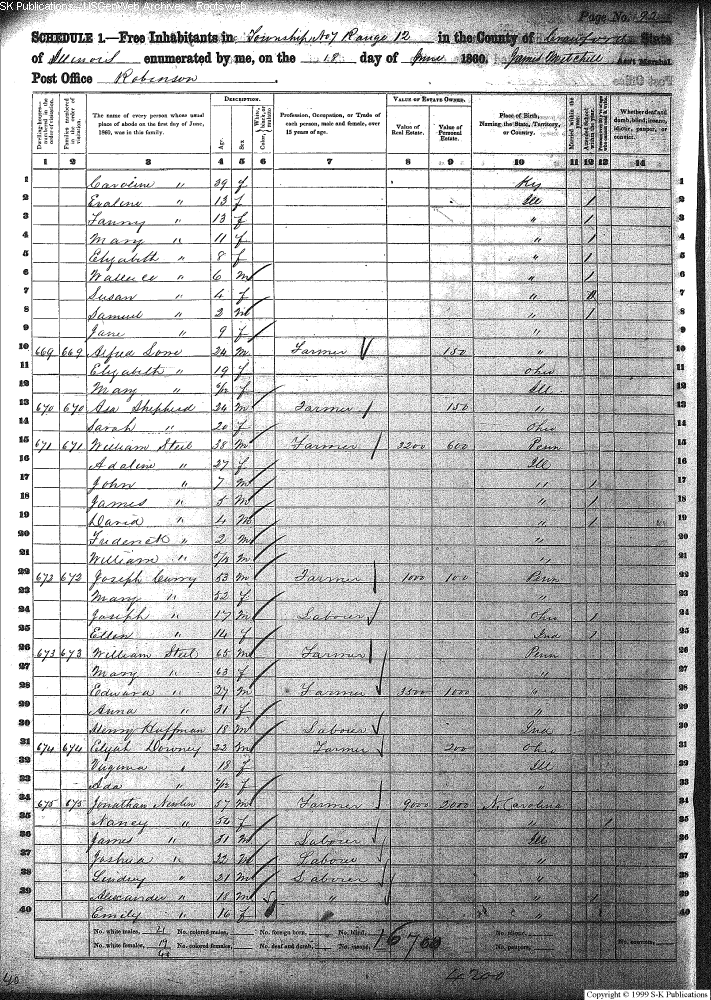 SK Publications - USGenWeb Archives - Rootsweb
Page No. 92
SCHEDULE 1.—Free Inhabitants in Township No 7 Range 12 in the County of Crawford State
of Illinois enumerated by me, on the 18 day of June 1860. James Mitchell Ass't Marshal
Post Office Robinson.
DESCRIPTION. VALUE OF ESTATE OWNED.
Dwelling-houses—numbered in the order of visitation. Families numbered in the order of visitation. The name of every person whose usual place of abode on the first day of June, 1860, was in this family. Age. Sex. Color, White, black, or mulatto. Profession, Occupation, or Trade of each person, male and female, over 15 years of age. Value of Real Estate. Value of Personal Estate. Place of Birth, Naming the State, Territory, or Country. Married within the year. Attended School within the year. Whether deaf and dumb, blind, insane, idiotic, pauper, or convict.
1 2 3 4 5 6 7 8 9 10 11 12 13 14
1 Caroline " 39 f Ky 1
2 Evaline " 13 f Ill / 2
3 Fanny " 13 f " / 3
4 Mary " 11 f " / 4
5 Elizabeth " 8 f " / 5
6 Wallace " 6 m " / 6
7 Susan " 4 f " 7
8 Samuel " 2 m " / 8
9 Jane " 9 f " 9
10 669 669 Alfred 24 m Farmer 150 " 10
11 Elizabeth " 19 f Ohio 11
12 Mary " /12 f Ill 12
13 670 670 Asa Shepherd 24 m Farmer 150 " 13
14 Sarah " 20 f Ohio 14
15 671 671 William Steel 38 m Farmer 3200 600 Penn 15
16 Adaline " 27 f Ill 16
17 John " 7 m " / 17
18 James " 5 m " / 18
19 David " 4 m " / 19
20 Frederick " 2 m " 20
21 William " 5/12 m " 21
22 672 672 Joseph Curry 53 m Farmer 1000 100 Penn 22
23 Mary " 52 f " 23
24 Joseph " 17 m Labourer Ohio / 24
25 Ellen " 14 f Ind / 25
26 673 673 William Steel 65 m Farmer Penn 26
27 Mary " 63 f " 27
28 Edward " 27 m Farmer 3500 1000 " 28
29 Anna " 31 f " 29
30 Henry Huffman 18 m Labourer Ind 30
31 674 674 Elijah Downey 22 m Farmer 200 Ohio 31
32 Virginia " 18 f Ill 32
33 Ada " /12 f " 33
34 675 675 Jonathan Newlin 57 m Farmer 9000 2000 N. Carolina 34
35 Nancy " 56 f " / 35
36 James " 31 m Labourer Ill 36
37 Joshua " 22 m Labourer " 37
38 Lindrey " 21 m Labourer " 38
39 Alexander " 18 m " " 39
40 Emily " 16 f " 40
No. white males, 21 No. colored males, No. foreign born, No. blind,
No. white females, 19 No. colored females, No. deaf and dumb, No. insane, 16700 No. paupers, No. convicts,
40
4200
40
Copyright © 1999 S-K Publications